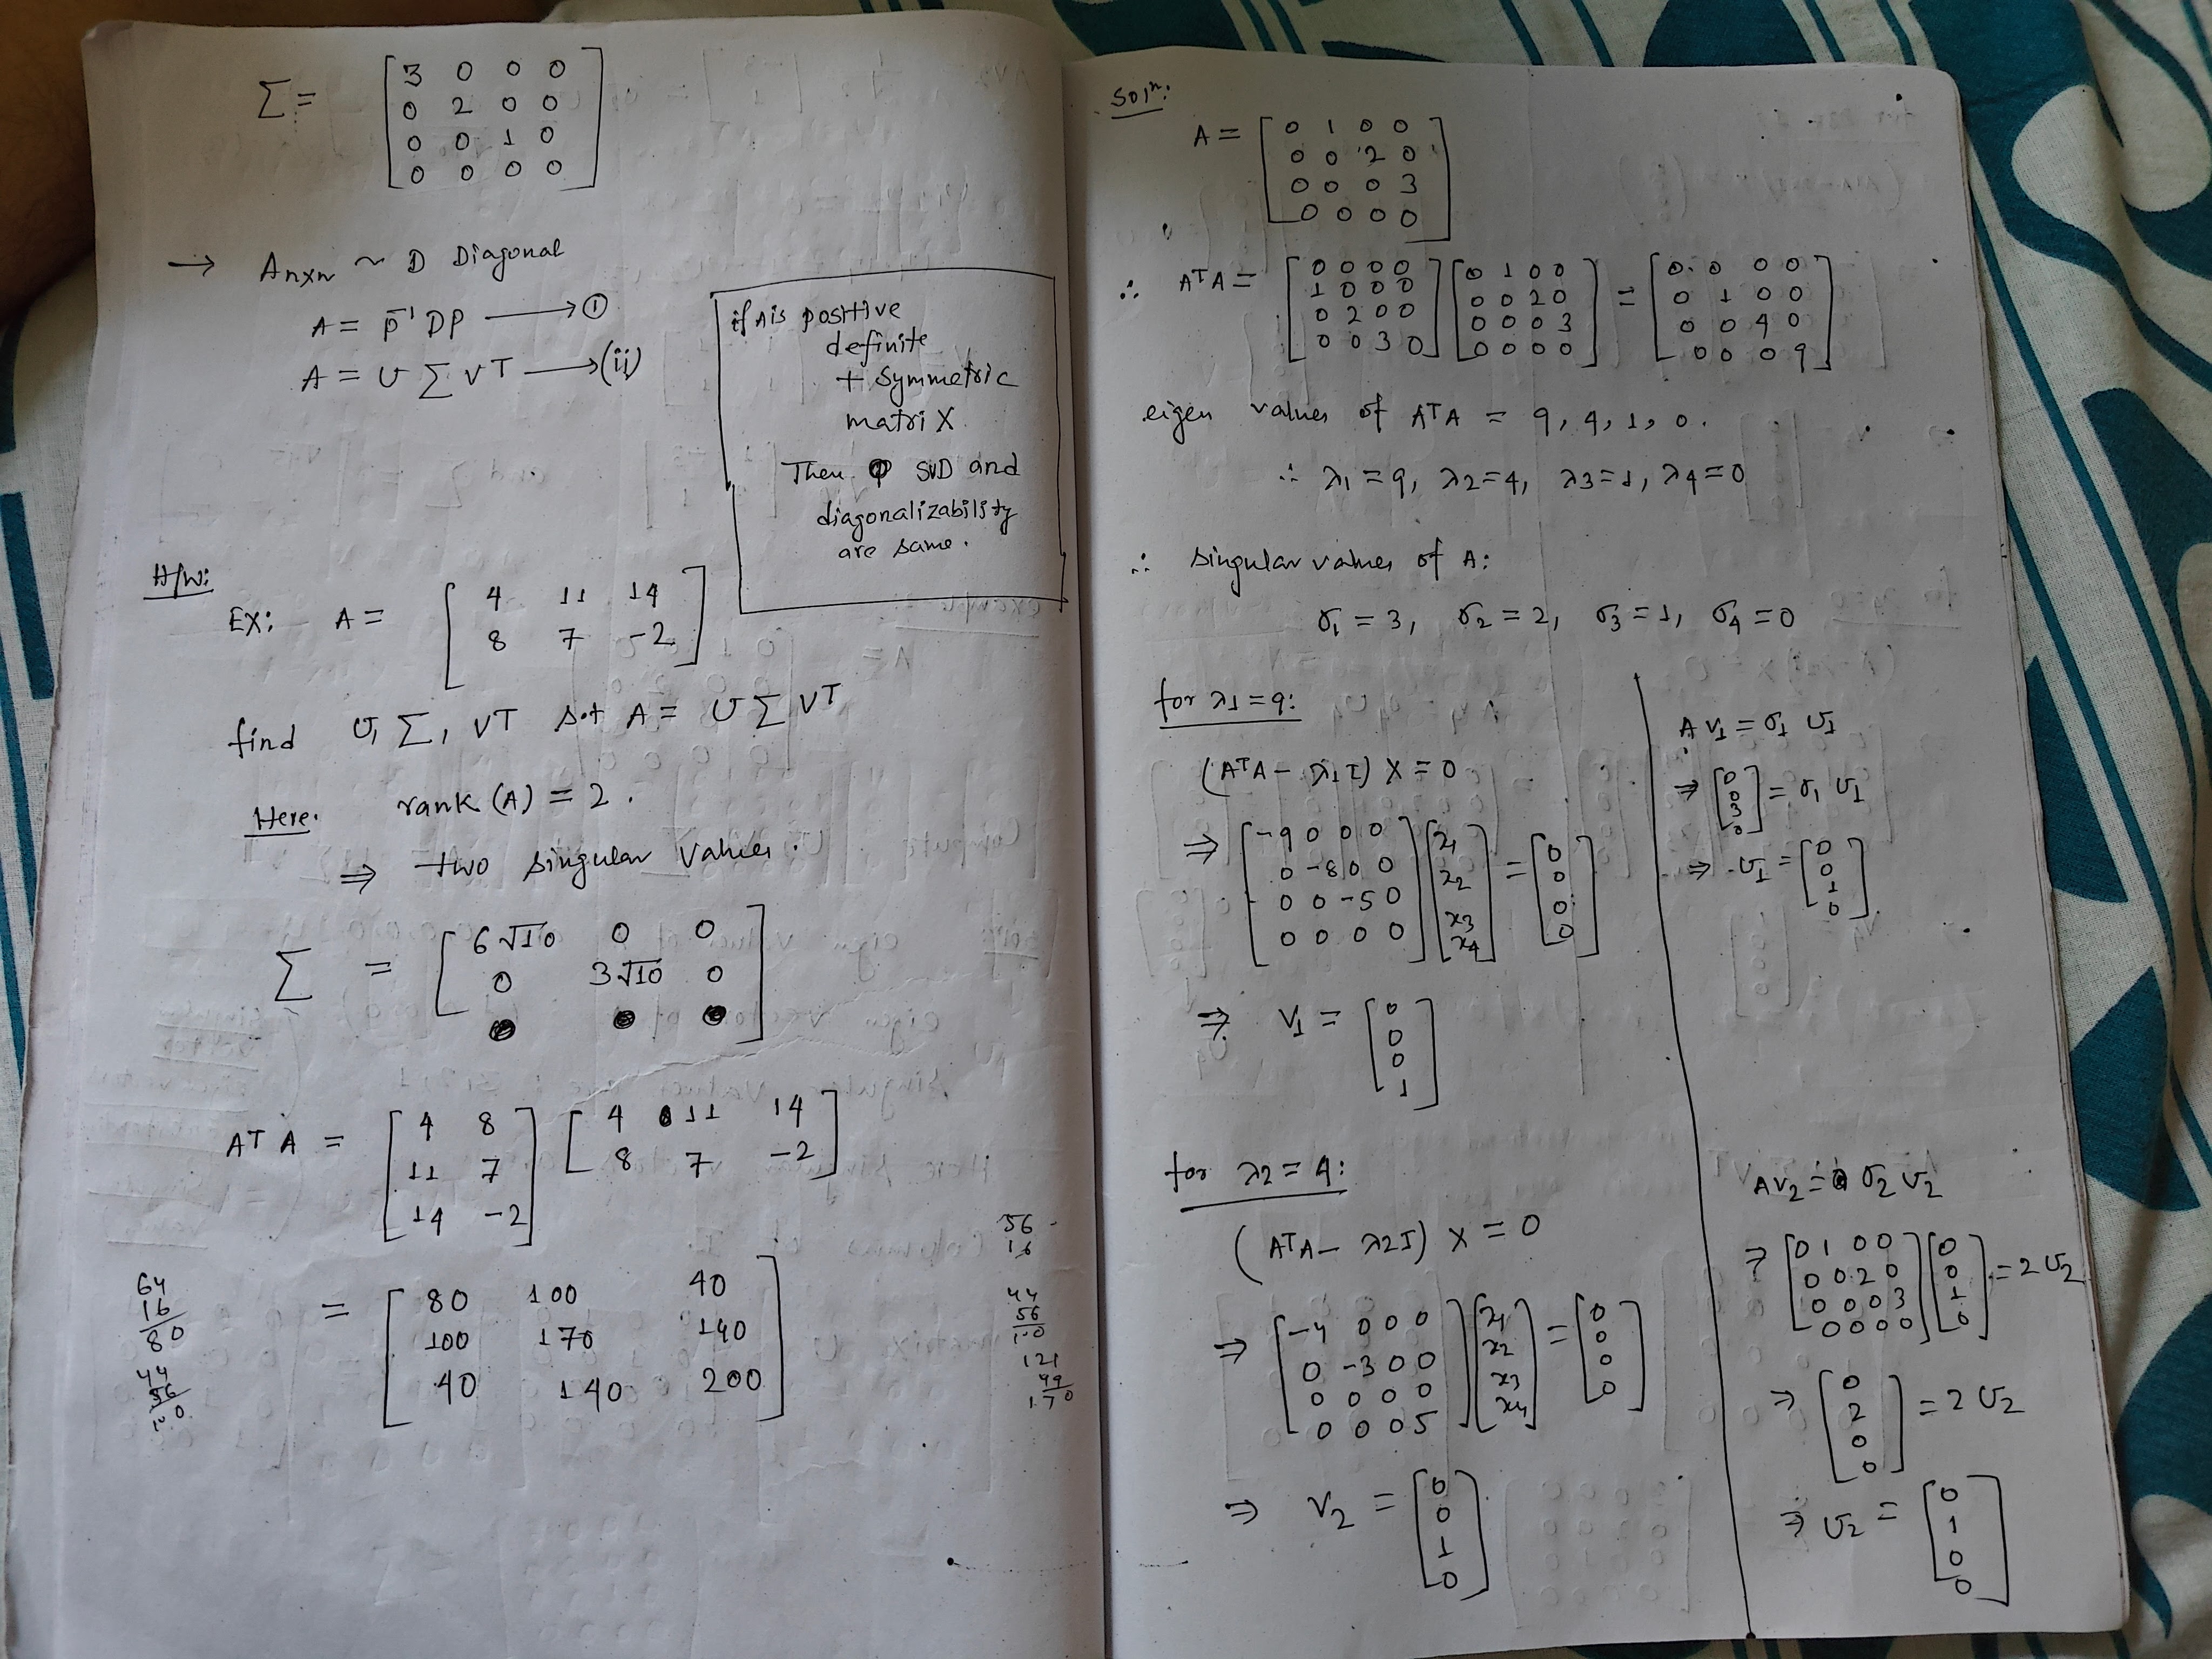 Σ = [ 3 0 0 0
0 2 0 0
0 0 1 0
0 0 0 0 ]
→ Anxn ~ D Diagonal
A = p⁻¹ D P → ①
A = U Σ VT → (ii)
if A is positive
definite
+ symmetric
matrix
Then SVD and
diagonalizability
are same.
H/W:
EX: A = [ 4 11 14
8 7 -2 ]
find U, Σ, VT s.t A = U Σ VT
Here. rank (A) = 2 .
⇒ two singular values .
Σ = [ 6√10 0 0
0 3√10 0 ]
AT A = [ 4 8
11 7
14 -2 ] [ 4 11 14
8 7 -2 ]
= [ 80 100 40
100 170 140
40 140 200 ]
64
16
80
44
56
56
16
44
56
121
49
170
Soln:
A = [ 0 1 0 0
0 0 2 0
0 0 0 3
0 0 0 0 ]
∴ ATA = [ 0 0 0 0
1 0 0 0
0 2 0 0
0 0 3 0 ] [ 0 1 0 0
0 0 2 0
0 0 0 3
0 0 0 0 ] = [ 0 0 0 0
0 1 0 0
0 0 4 0
0 0 0 9 ]
eigen values of ATA = 9, 4, 1, 0.
∴ λ1 = 9, λ2 = 4, λ3 = 1, λ4 = 0
∴ singular values of A:
σ1 = 3, σ2 = 2, σ3 = 1, σ4 = 0
for λ1 = 9:
(ATA - λ1I) X = 0
⇒ [ -9 0 0 0
0 -8 0 0
0 0 -5 0
0 0 0 0 ] [ x1
x2
x3
x4 ] = [ 0
0
0
0 ]
⇒ V1 = [ 0
0
0
1 ]
A V1 = σ1 U1
⇒ [ 0
0
3
0 ] = σ1 U1
⇒ U1 = [ 0
0
1
0 ]
for λ2 = 4:
(ATA - λ2I) X = 0
⇒ [ -4 0 0 0
0 -3 0 0
0 0 0 0
0 0 0 5 ] [ x1
x2
x3
x4 ] = [ 0
0
0
0 ]
⇒ V2 = [ 0
0
1
0 ]
AV2 = σ2 U2
⇒ [ 0 1 0 0
0 0 2 0
0 0 0 3
0 0 0 0 ] [ 0
0
1
0 ] = 2 U2
⇒ [ 0
2
0
0 ] = 2 U2
⇒ U2 = [ 0
1
0
0 ]